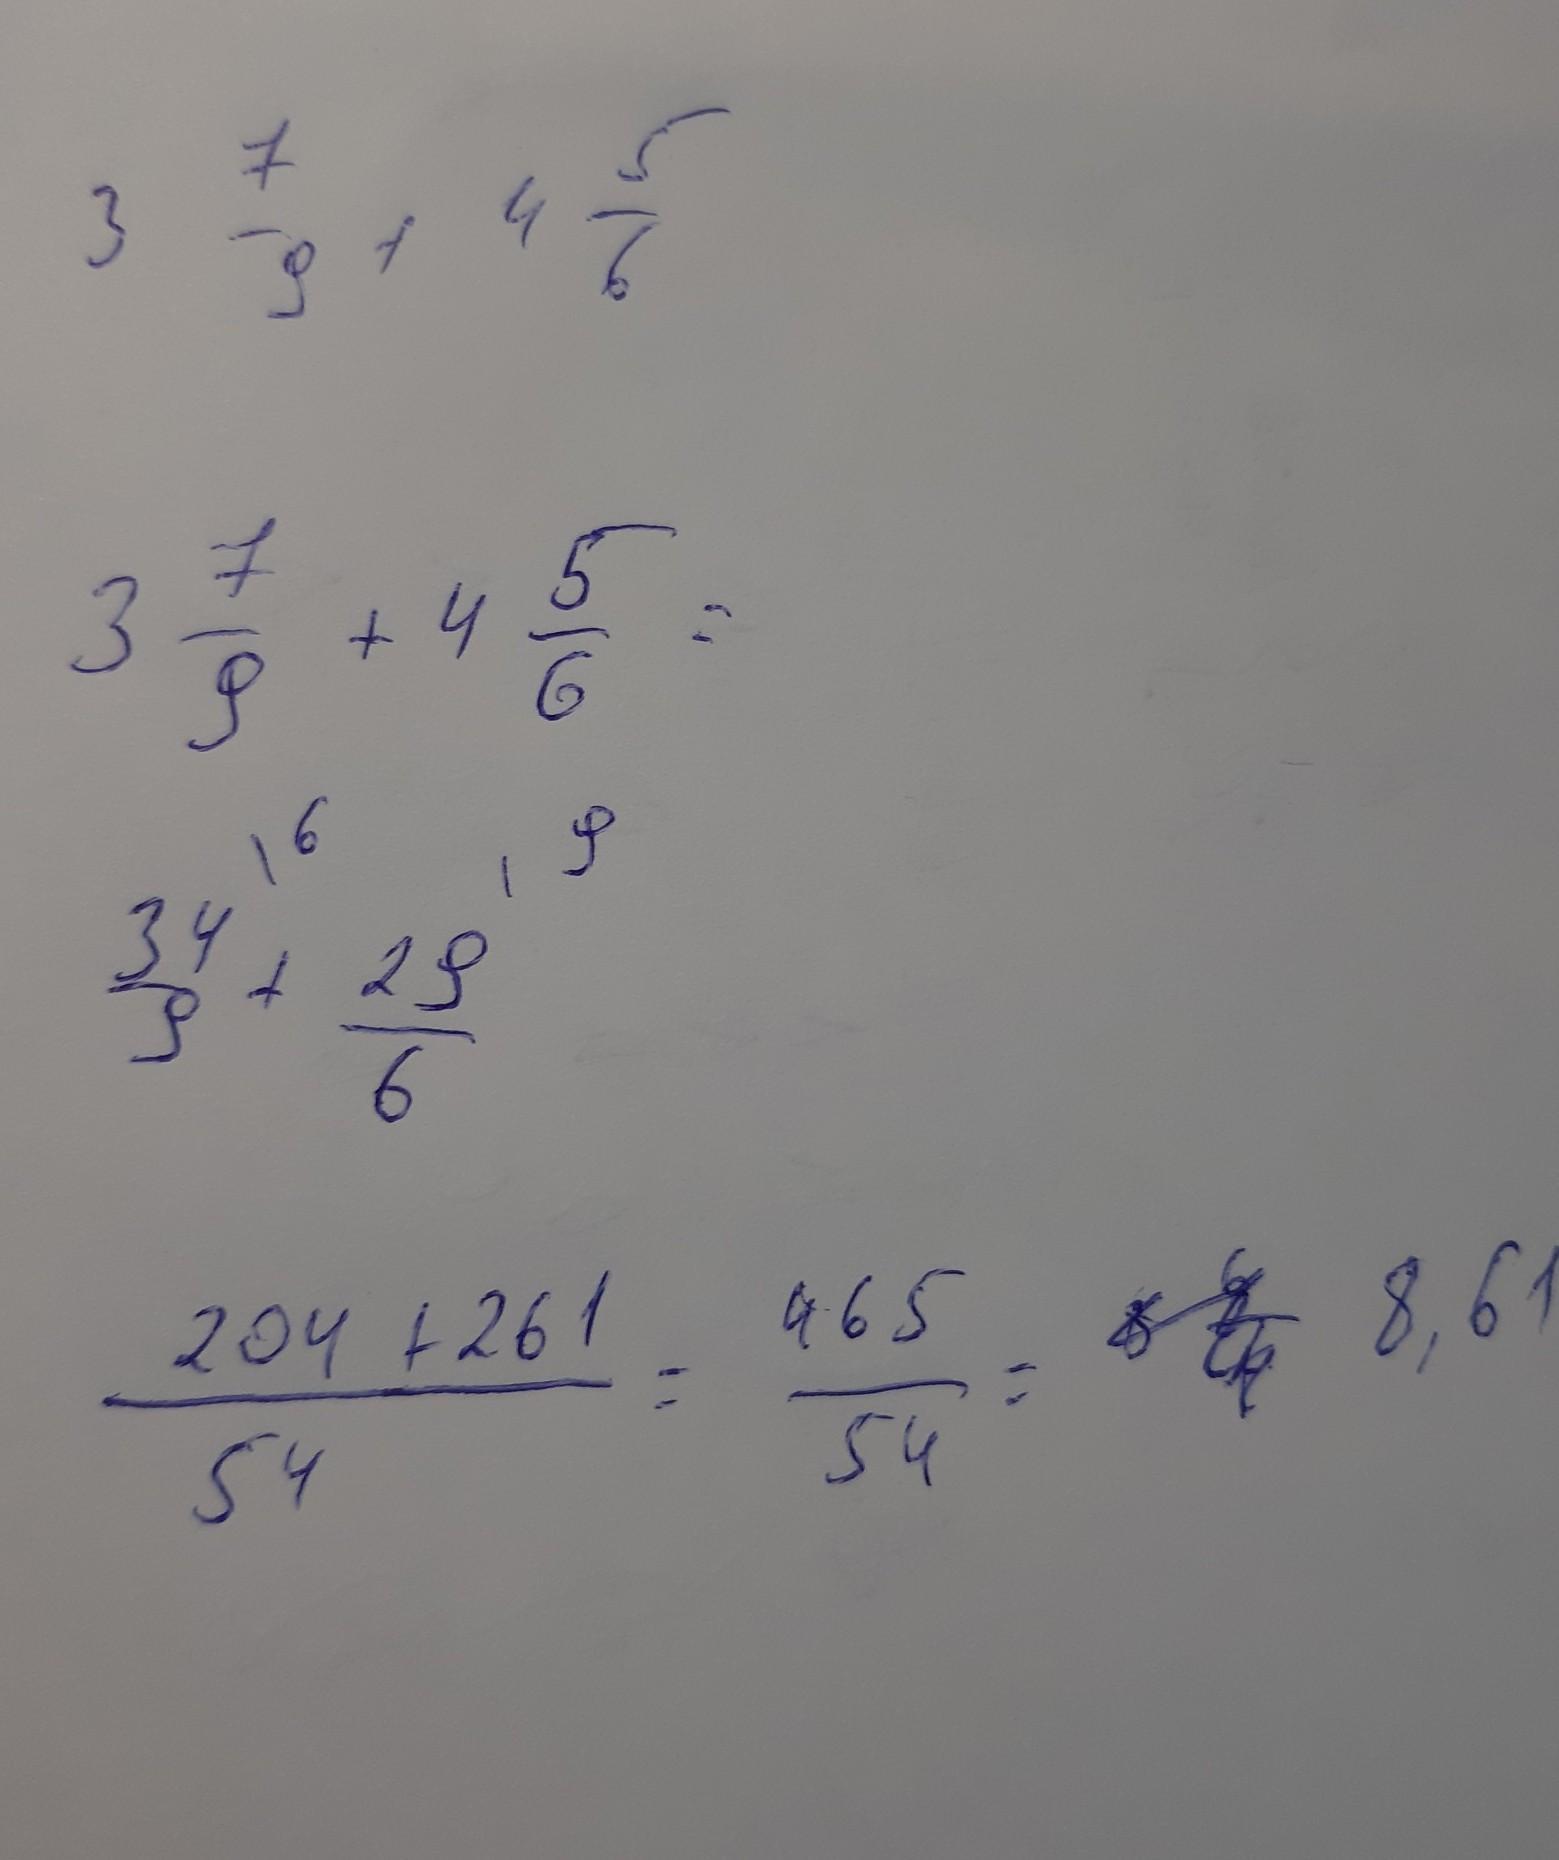 3 7/9 + 4 5/6
3 7/9 + 4 5/6 =
34/9 \6 + 29/6 \9
204 + 261/54 = 465/54 = 8,61